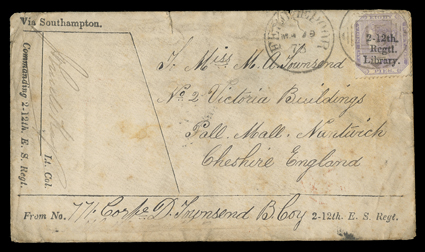 Via Southampton.
2-12th.
Regtl.
Library.
To Miss M. A. Townsend
No 2 Victoria Buildings
Pall. Mall. Nantwich
Cheshire England
Lt. Col.
Commanding 2-12th. E. S. Regt.
From No. 771. Corpl D. Townsend B. Coy 2-12th. E. S. Regt.